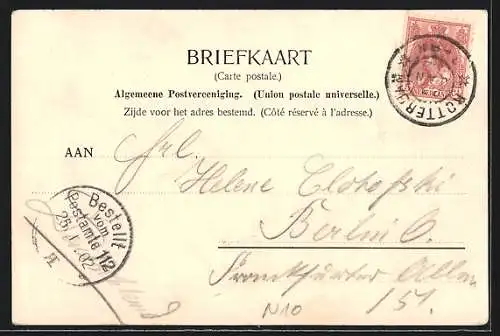 BRIEFKAART
(Carte postale.)
Algemeene Postvereeniging. (Union postale universelle.)
Zijde voor het adres bestemd. (Côté réservé à l'adresse.)
AAN Frl.
Helene
Berlin O.
Frankfurter Allee
151.
N10
Bestellt
vom
Postamte 112
ROTTERDAM